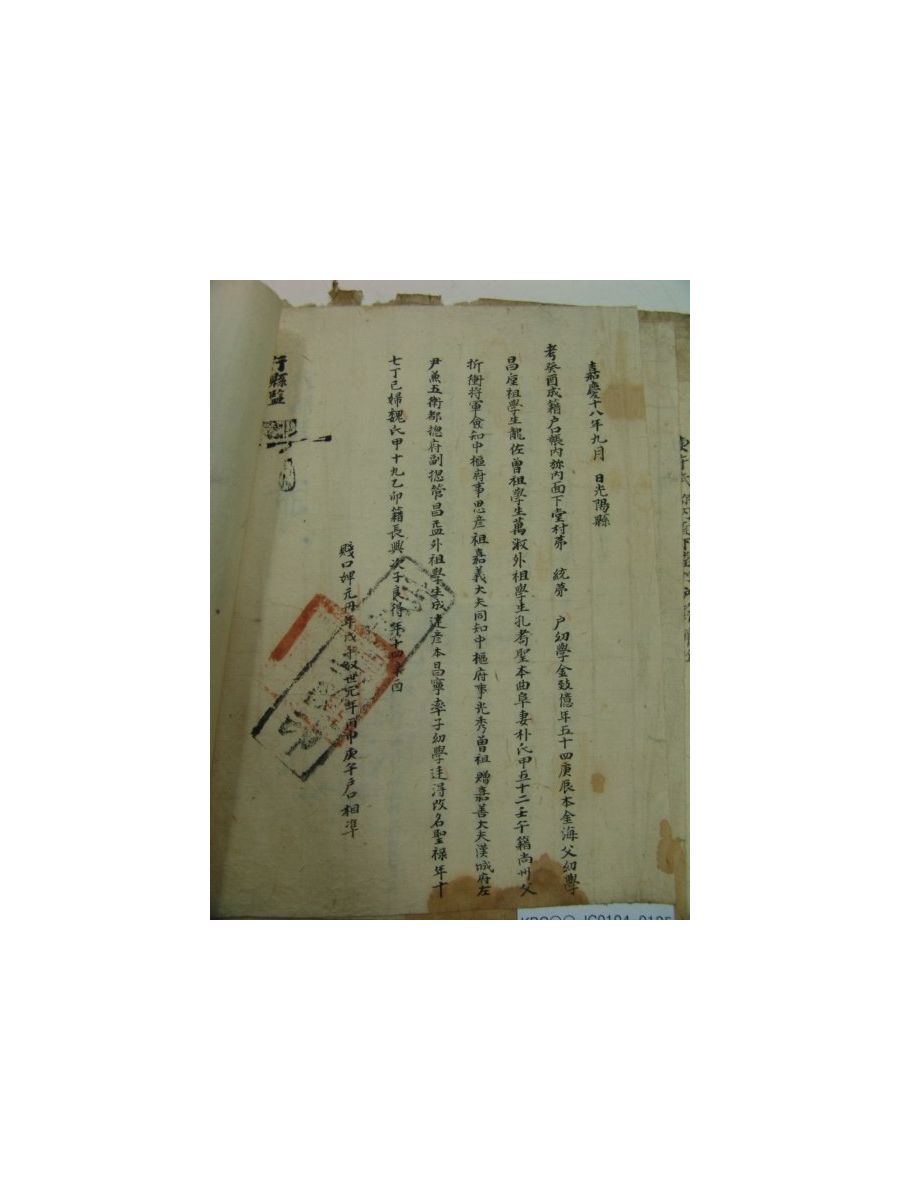 嘉慶十八年九月 日光陽縣
考癸酉成籍户口帳內 內面下堂村第 統第 户幼學金致億年五十四庚辰本金海父幼學
昌 祖學生龍佐曾祖學生萬淑外祖學生孔 聖本曲阜妻朴氏甲五十二壬午籍尚州父
折衝將軍僉知中樞府事思彦祖嘉義大夫同知中樞府事光秀曾祖 贈嘉善大夫漢城府左
尹兼五衛都摠府副摠管昌 外祖學生成達彦本昌寧率子幼學逹得改名聖禄年十
七丁巳婦魏氏甲十九乙卯籍長興次子良得年十四
賤口婢元丹年戊午 世 年丙申庚午户口相准
行縣監